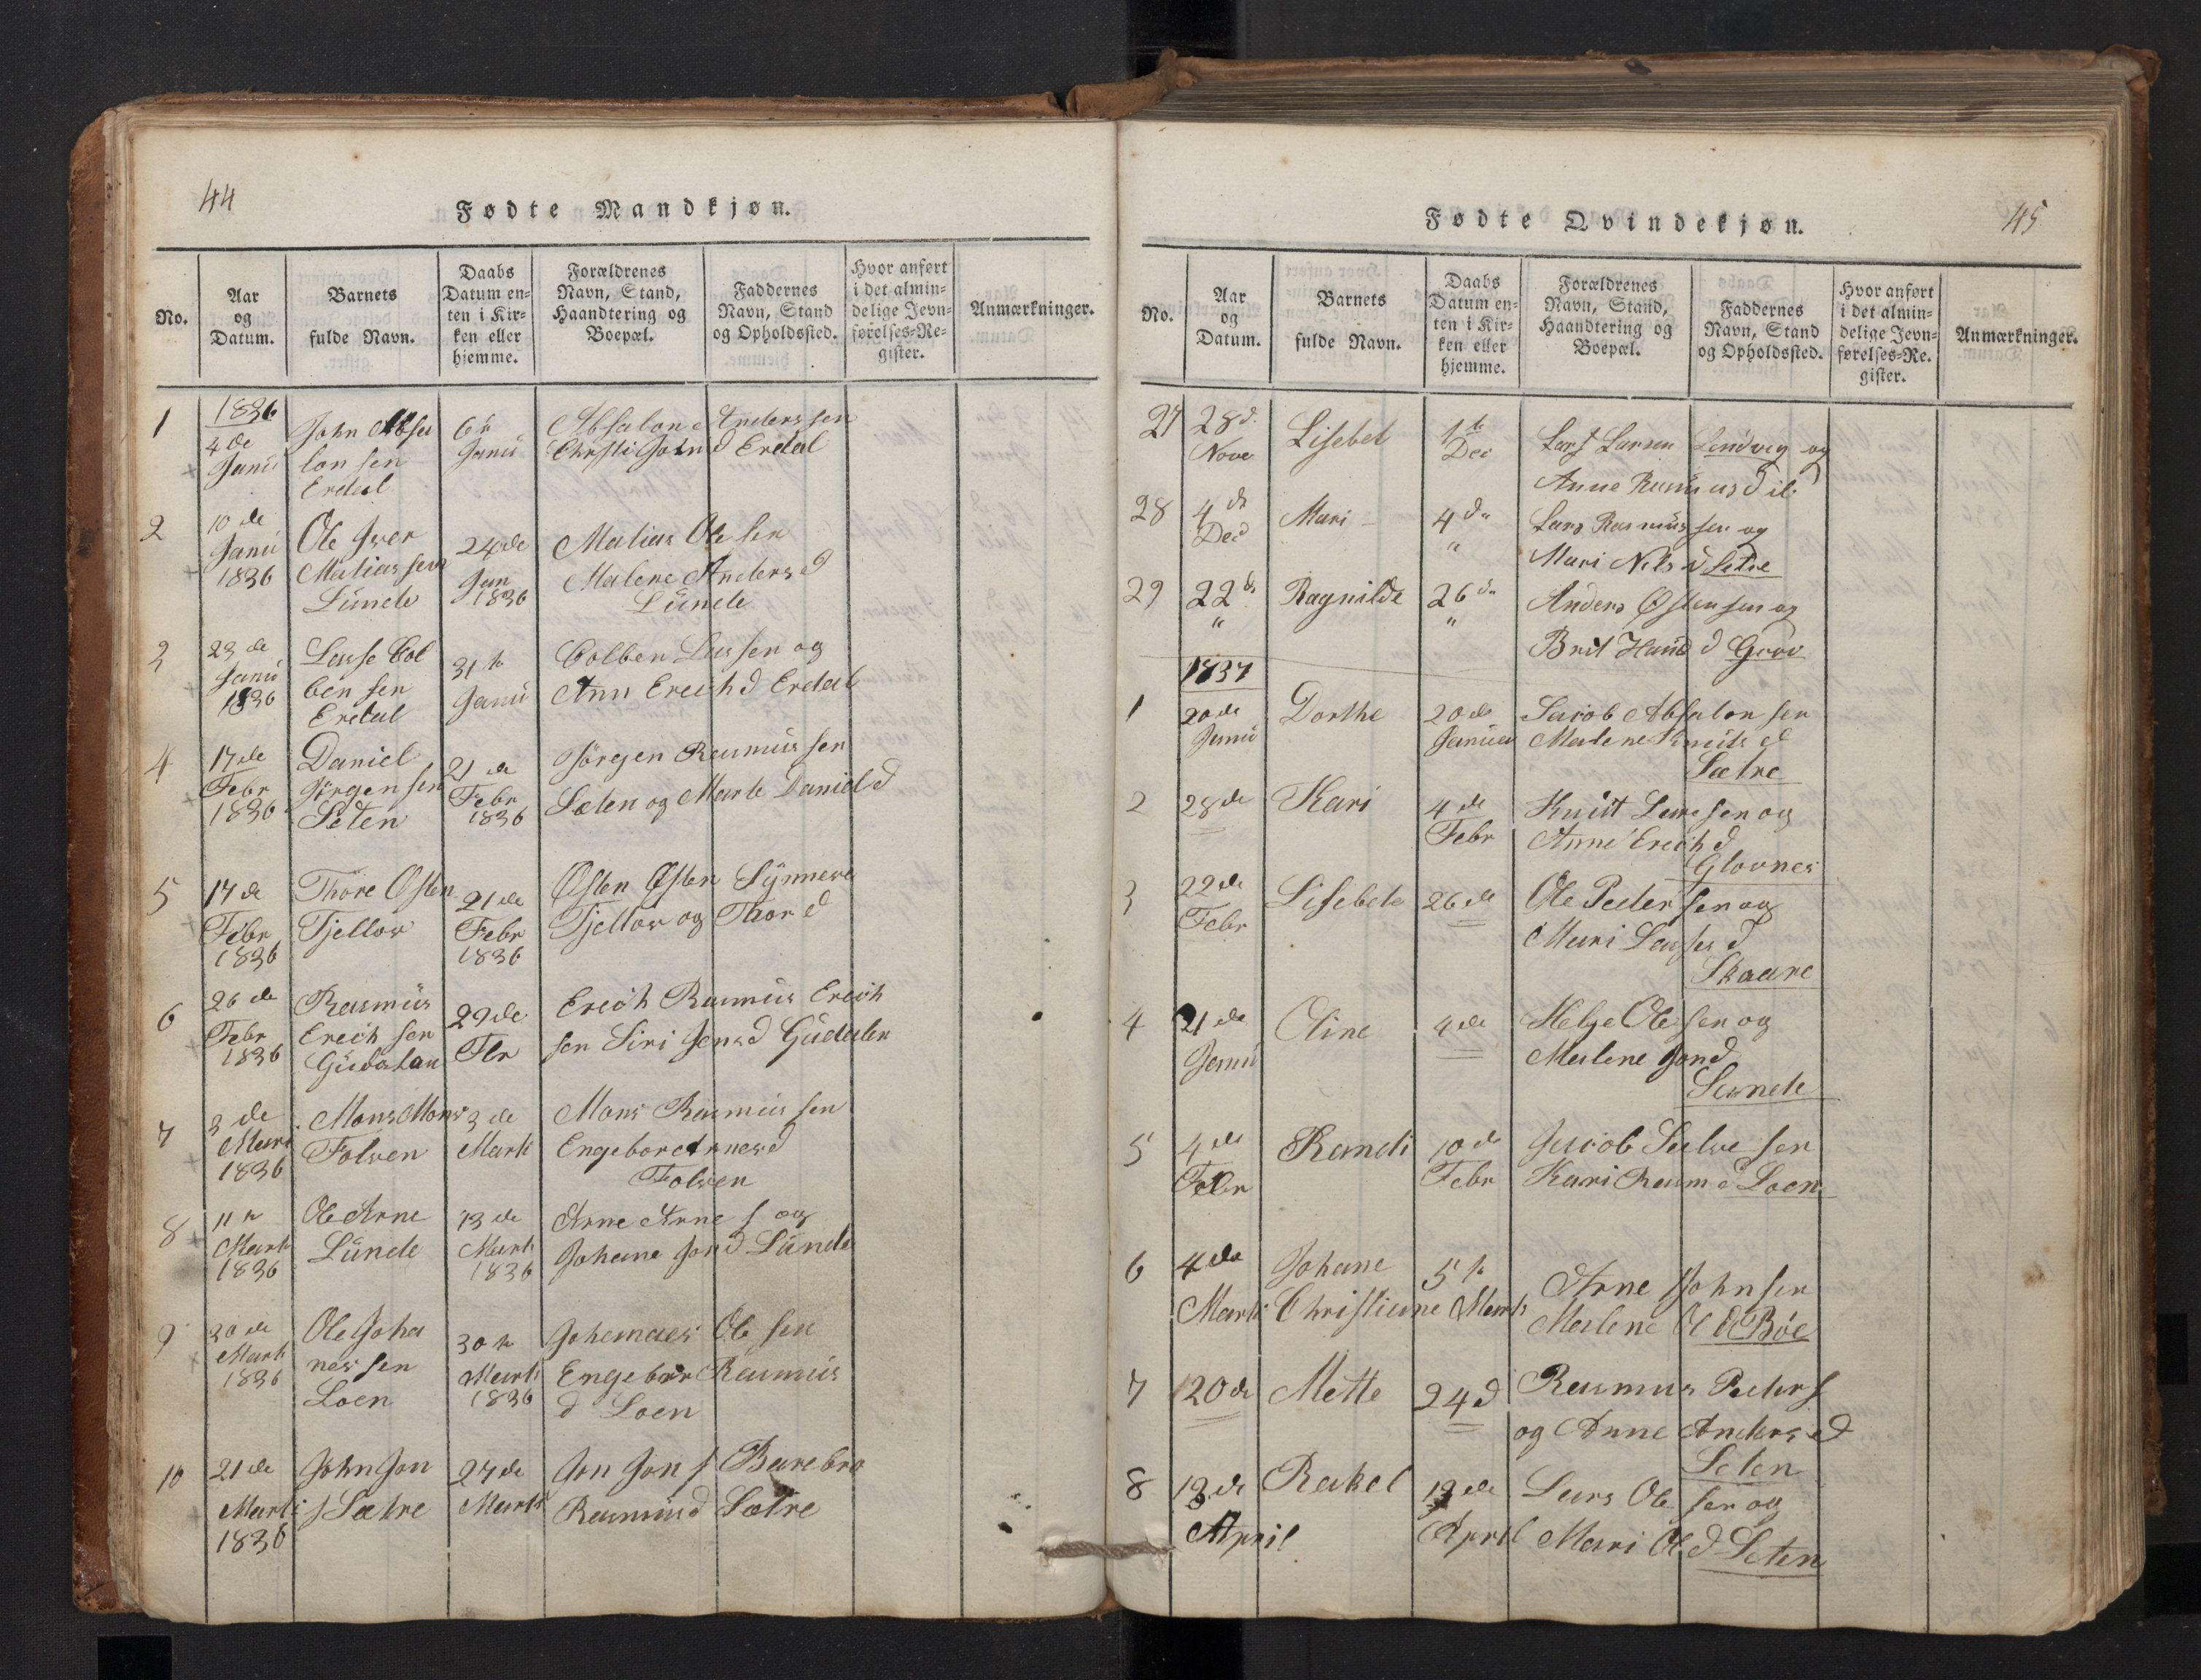 44
Fødte Mandkjøn.
No.
Aar
og
Datum.
Barnets
fulde Navn.
Daabs
Datum en-
ten i Kir-
ken eller
hjemme.
Forældrenes
Navn, Stand,
Haandtering og
Boepæl.
Faddernes
Navn, Stand
og Opholdssted.
Hvor anført
i det almin-
delige Jevn-
førelses-Re-
gister.
Anmærkninger.
1
1836
4 de
Janu
John Absa
lon sen
Erdal
6te
Janu
Absalon Anderssen
Christi John d Erdal
2
10 de
Janu
1836
Ole Iver
Matias sen
Lunde
24de
Jan
1836
Matias Ole sen
Malene Anders d
Lunde
3
23 de
Janu
1836
Lasse Col
ben sen
Erdal
31 te
Janu
Colben Lassen og
Ann Erich d Erdal
4
17 de
Febr
1836
Daniel
Jörgen sen
Seten
21 de
Febr
1836
Jörgen Rasmus sen
Sæten og Marte Daniel d
5
17 de
Febr
1836
Thore Østen
Tjellow
21 de
Febr
1836
Østen Østen Synneve
Tjellow og Thor d
6
26 de
Febr
1836
Rasmus
Erich sen
29de
Erich Rasmus Erich
sen Siri Jens d
7
3 de
Mart
1836
Mons Mons
Folven
3 de
Marti
Mons Rasmus sen
Folven
8
11 te
Marti
1836
Ole Arne
Lunde
13 de
Marti
1836
Arne Arne s og
Johane Jon d Lunde
9
30 de
Marti
1836
Ole Joha
nes sen
Loen
30 te
Marti
1836
Johannes Ole sen
Engebor Rasmus
d Loen
10
21 de
Marti
1836
John Jon
s Sætre
27 de
Marti
Jon Jon s Barebro
Rasmus d Sætre
45
Fødte Qvindekjøn.
No.
Aar
og
Datum.
Barnets
fulde Navn.
Daabs
Datum en-
ten i Kir-
ken eller
hjemme.
Forældrenes
Navn, Stand,
Haandtering og
Boepæl.
Faddernes
Navn, Stand
og Opholdssted.
Hvor anført
i det almin-
delige Jevn-
førelses-Re-
gister.
Anmærkninger.
27
28 d
Nove
Lisebet
1te
Dec
Lars Larsen og
Anne Rasmus
28
4 de
Ded
Mari
4 de
"
Lars Rasmus sen og
Mari Nils d Setre
29
22 de
"
Ragnilde
26 de
"
Anders Østensen og
Brit Hans d Grov
1837
1
20 de
Janu
Dorthe
20 de
Januar
Jacob Absalon sen
Malene Knuts d
Sætre
2
28 de
Kari
4 de
Febr
Knut Larssen og
Anne Erich d
Glovnes
3
22 de
Febr
Lisebete
26 de
Ole Peder sen og
Mari Lasses d
Skaare
4
21 de
Janu
Oline
4 de
Helge Ole sen og
Malene Jon d
Sande
5
4 de
Febr
Randi
10 d
Febr
Jacob sen
Kari Rasm d Loen
6
4 de
Marti
Johane
Christianne
5 te
Marti
Arne Johnsen
Malene Ol d Böe
7
20 de
Mette
24 d
Rasmus Peders
og Anne Anders d
Seten
8
13 de
April
Rakel
13 de
April
Lars Ole sen og
Mari Ol d Seten